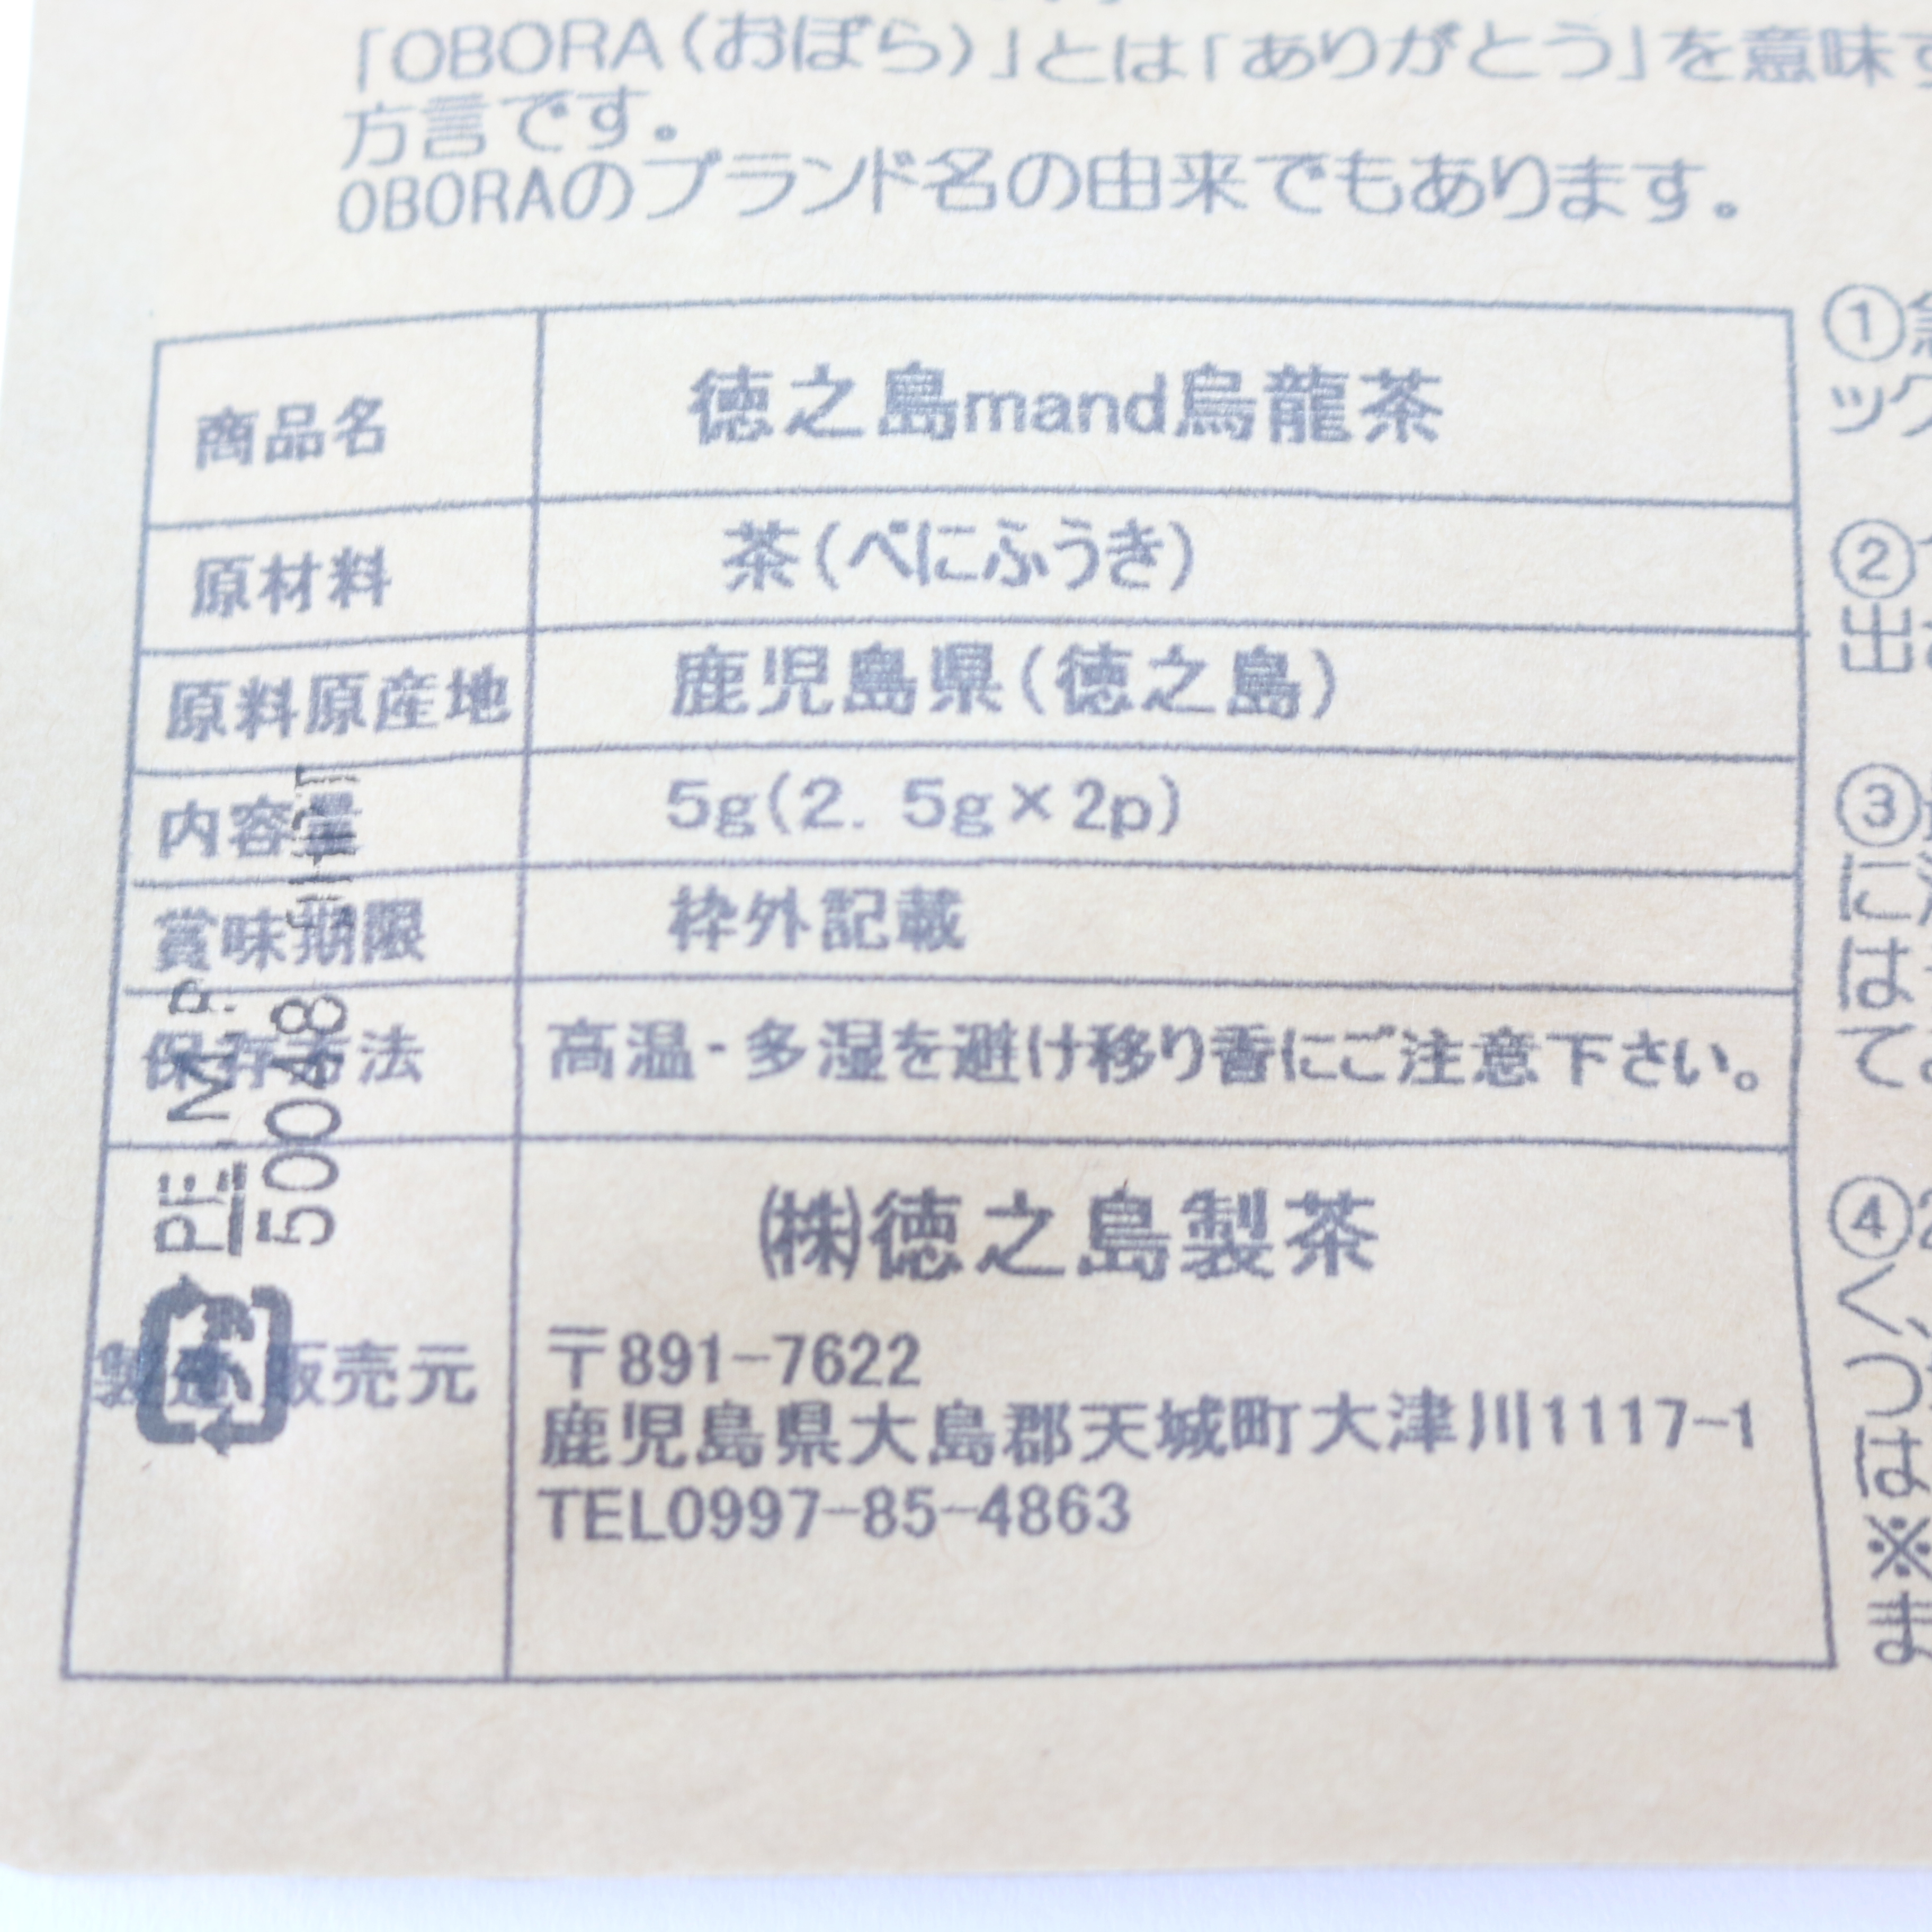 「OBORA(おぼら)」とは「ありがとう」を意味す
方言です。
OBORAのブランド名の由来でもあります。
商品名 徳之島mand烏龍茶
原材料 茶(べにふうき)
原料原産地 鹿児島県(徳之島)
内容量 5g(2.5g×2p)
賞味期限 枠外記載
保存方法 高温・多湿を避け移り香にご注意下さい。
製造販売元 ㈱徳之島製茶
〒891-7622
鹿児島県大島郡天城町大津川1117-1
TEL0997-85-4863
PE,M,P
50048
①
ック
②
出
③
に
は
て
④
く、
つ
は
※
ま